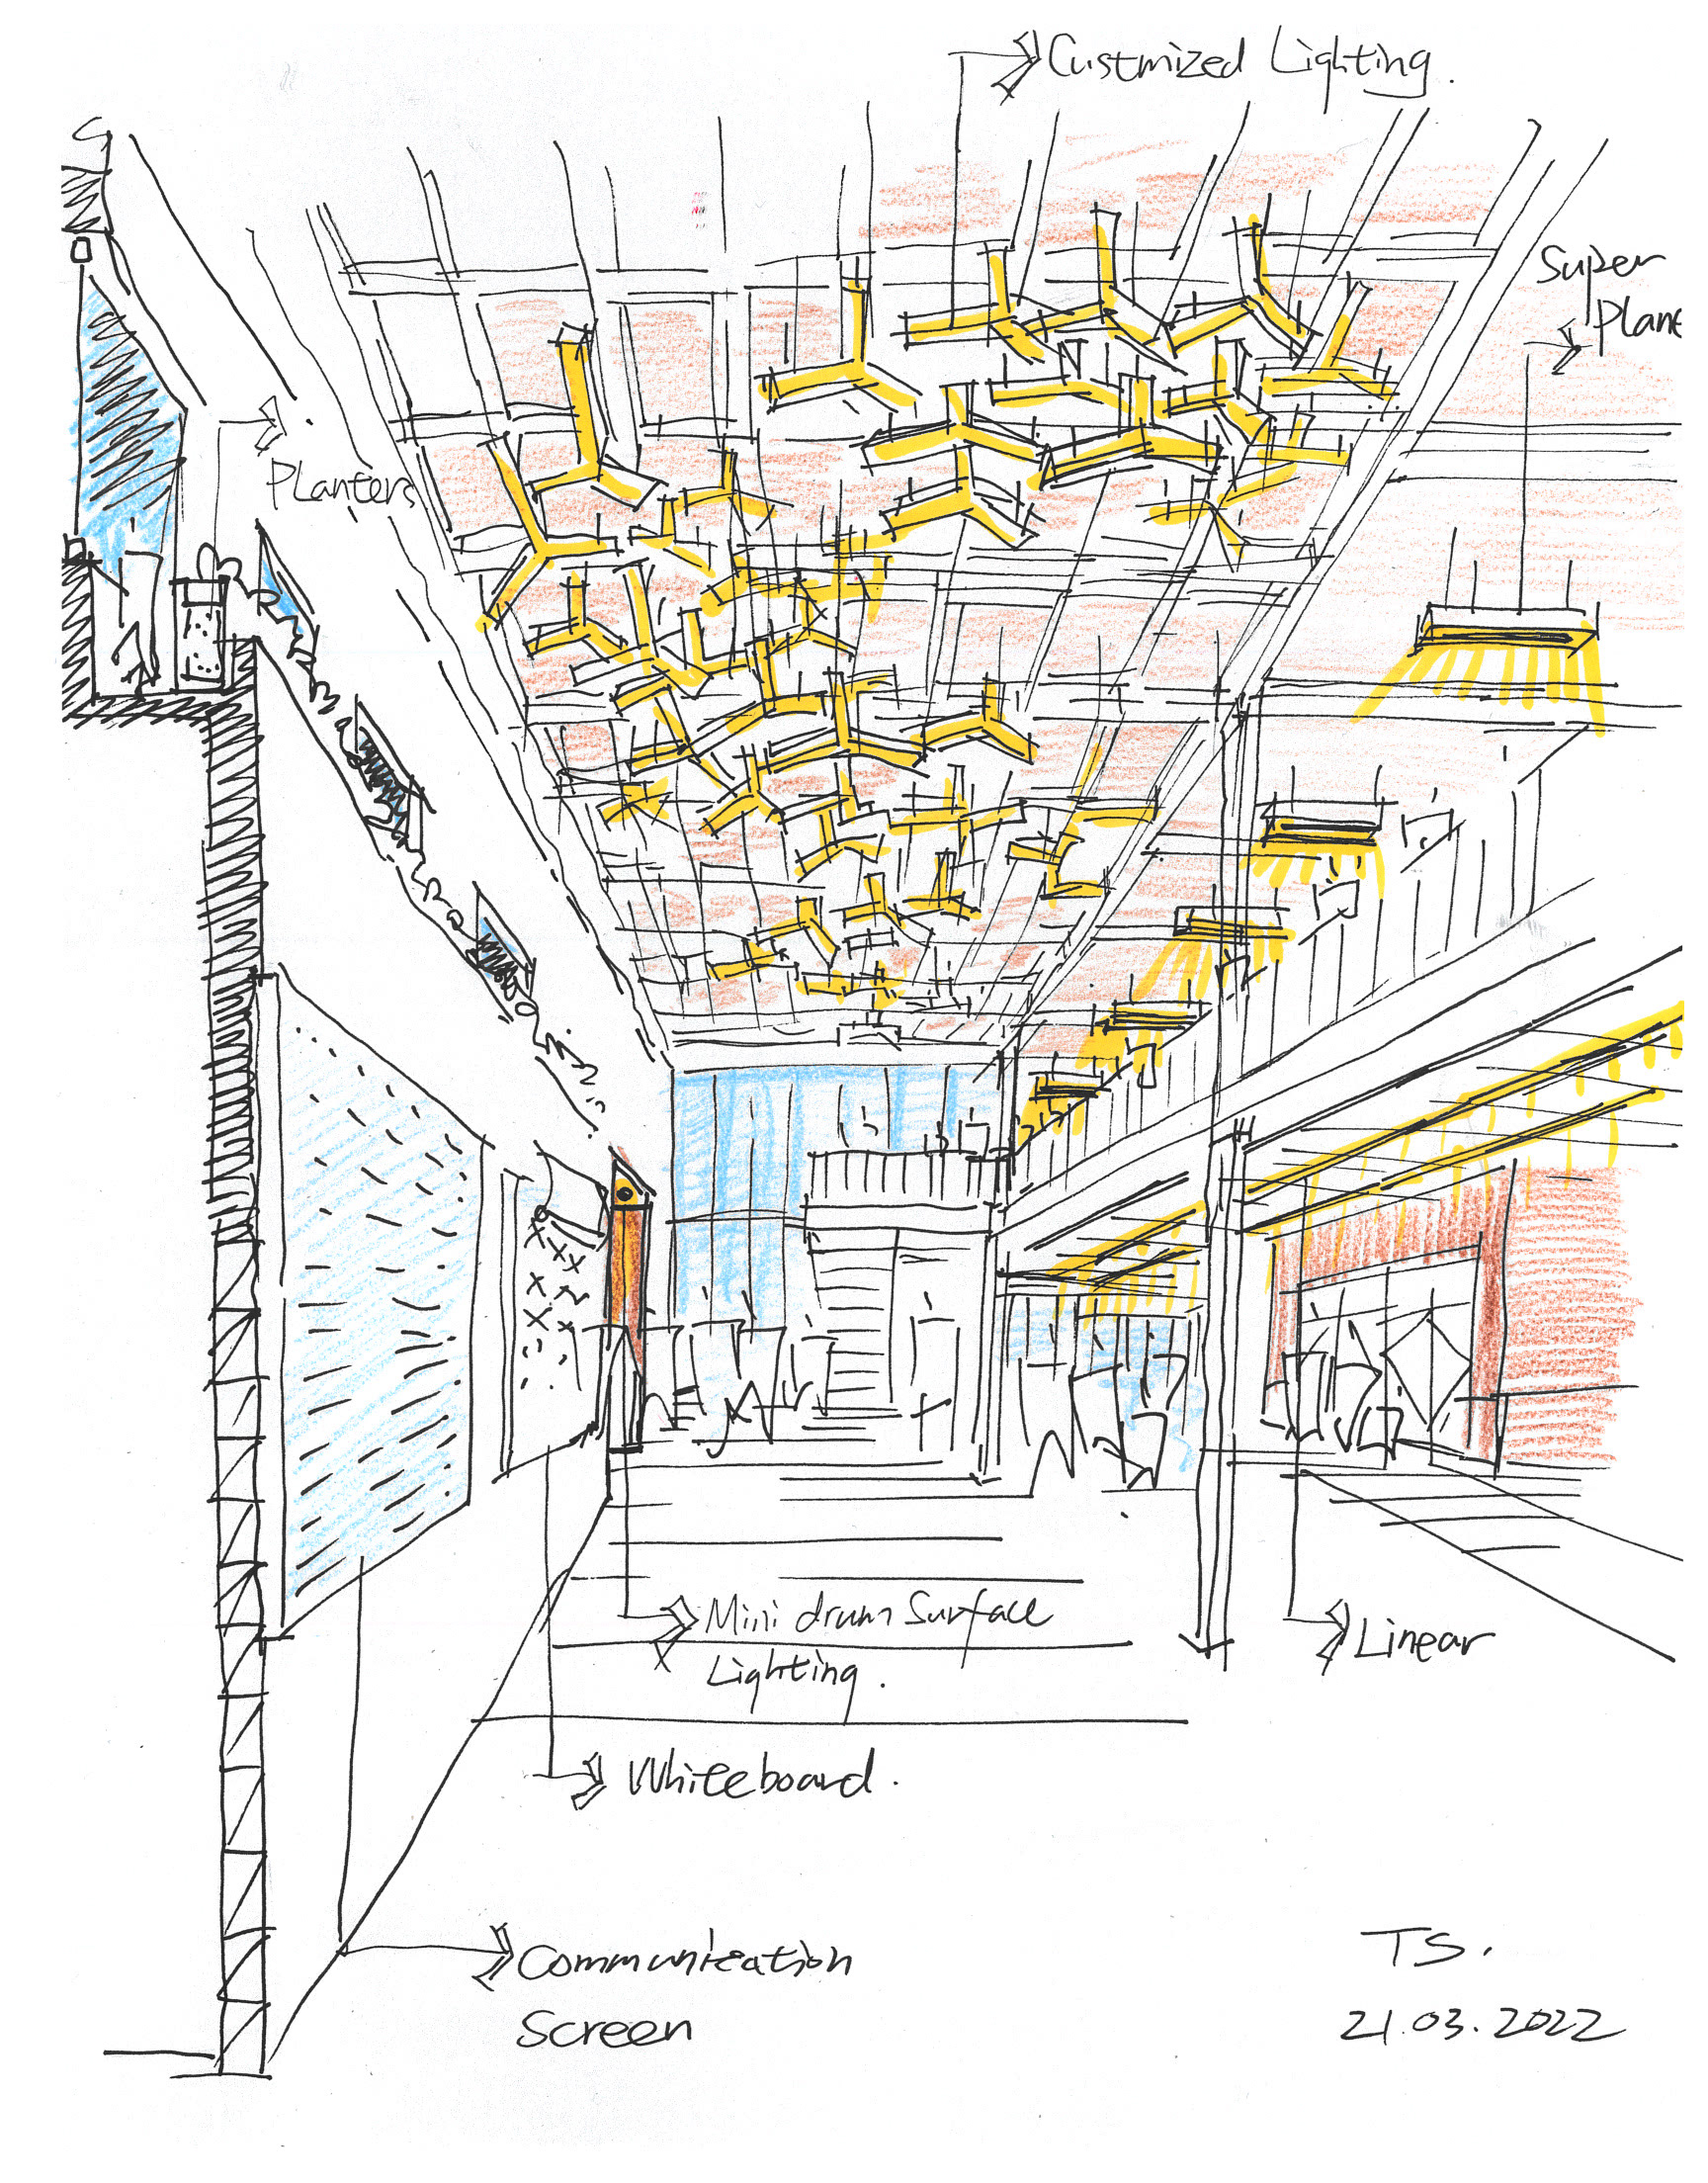 Custmized Lighting.
Super
Plane
Planters
Mini drum Surface
Lighting.
Linear
Whiteboard.
Communication
Screen
TS.
21.03.2022